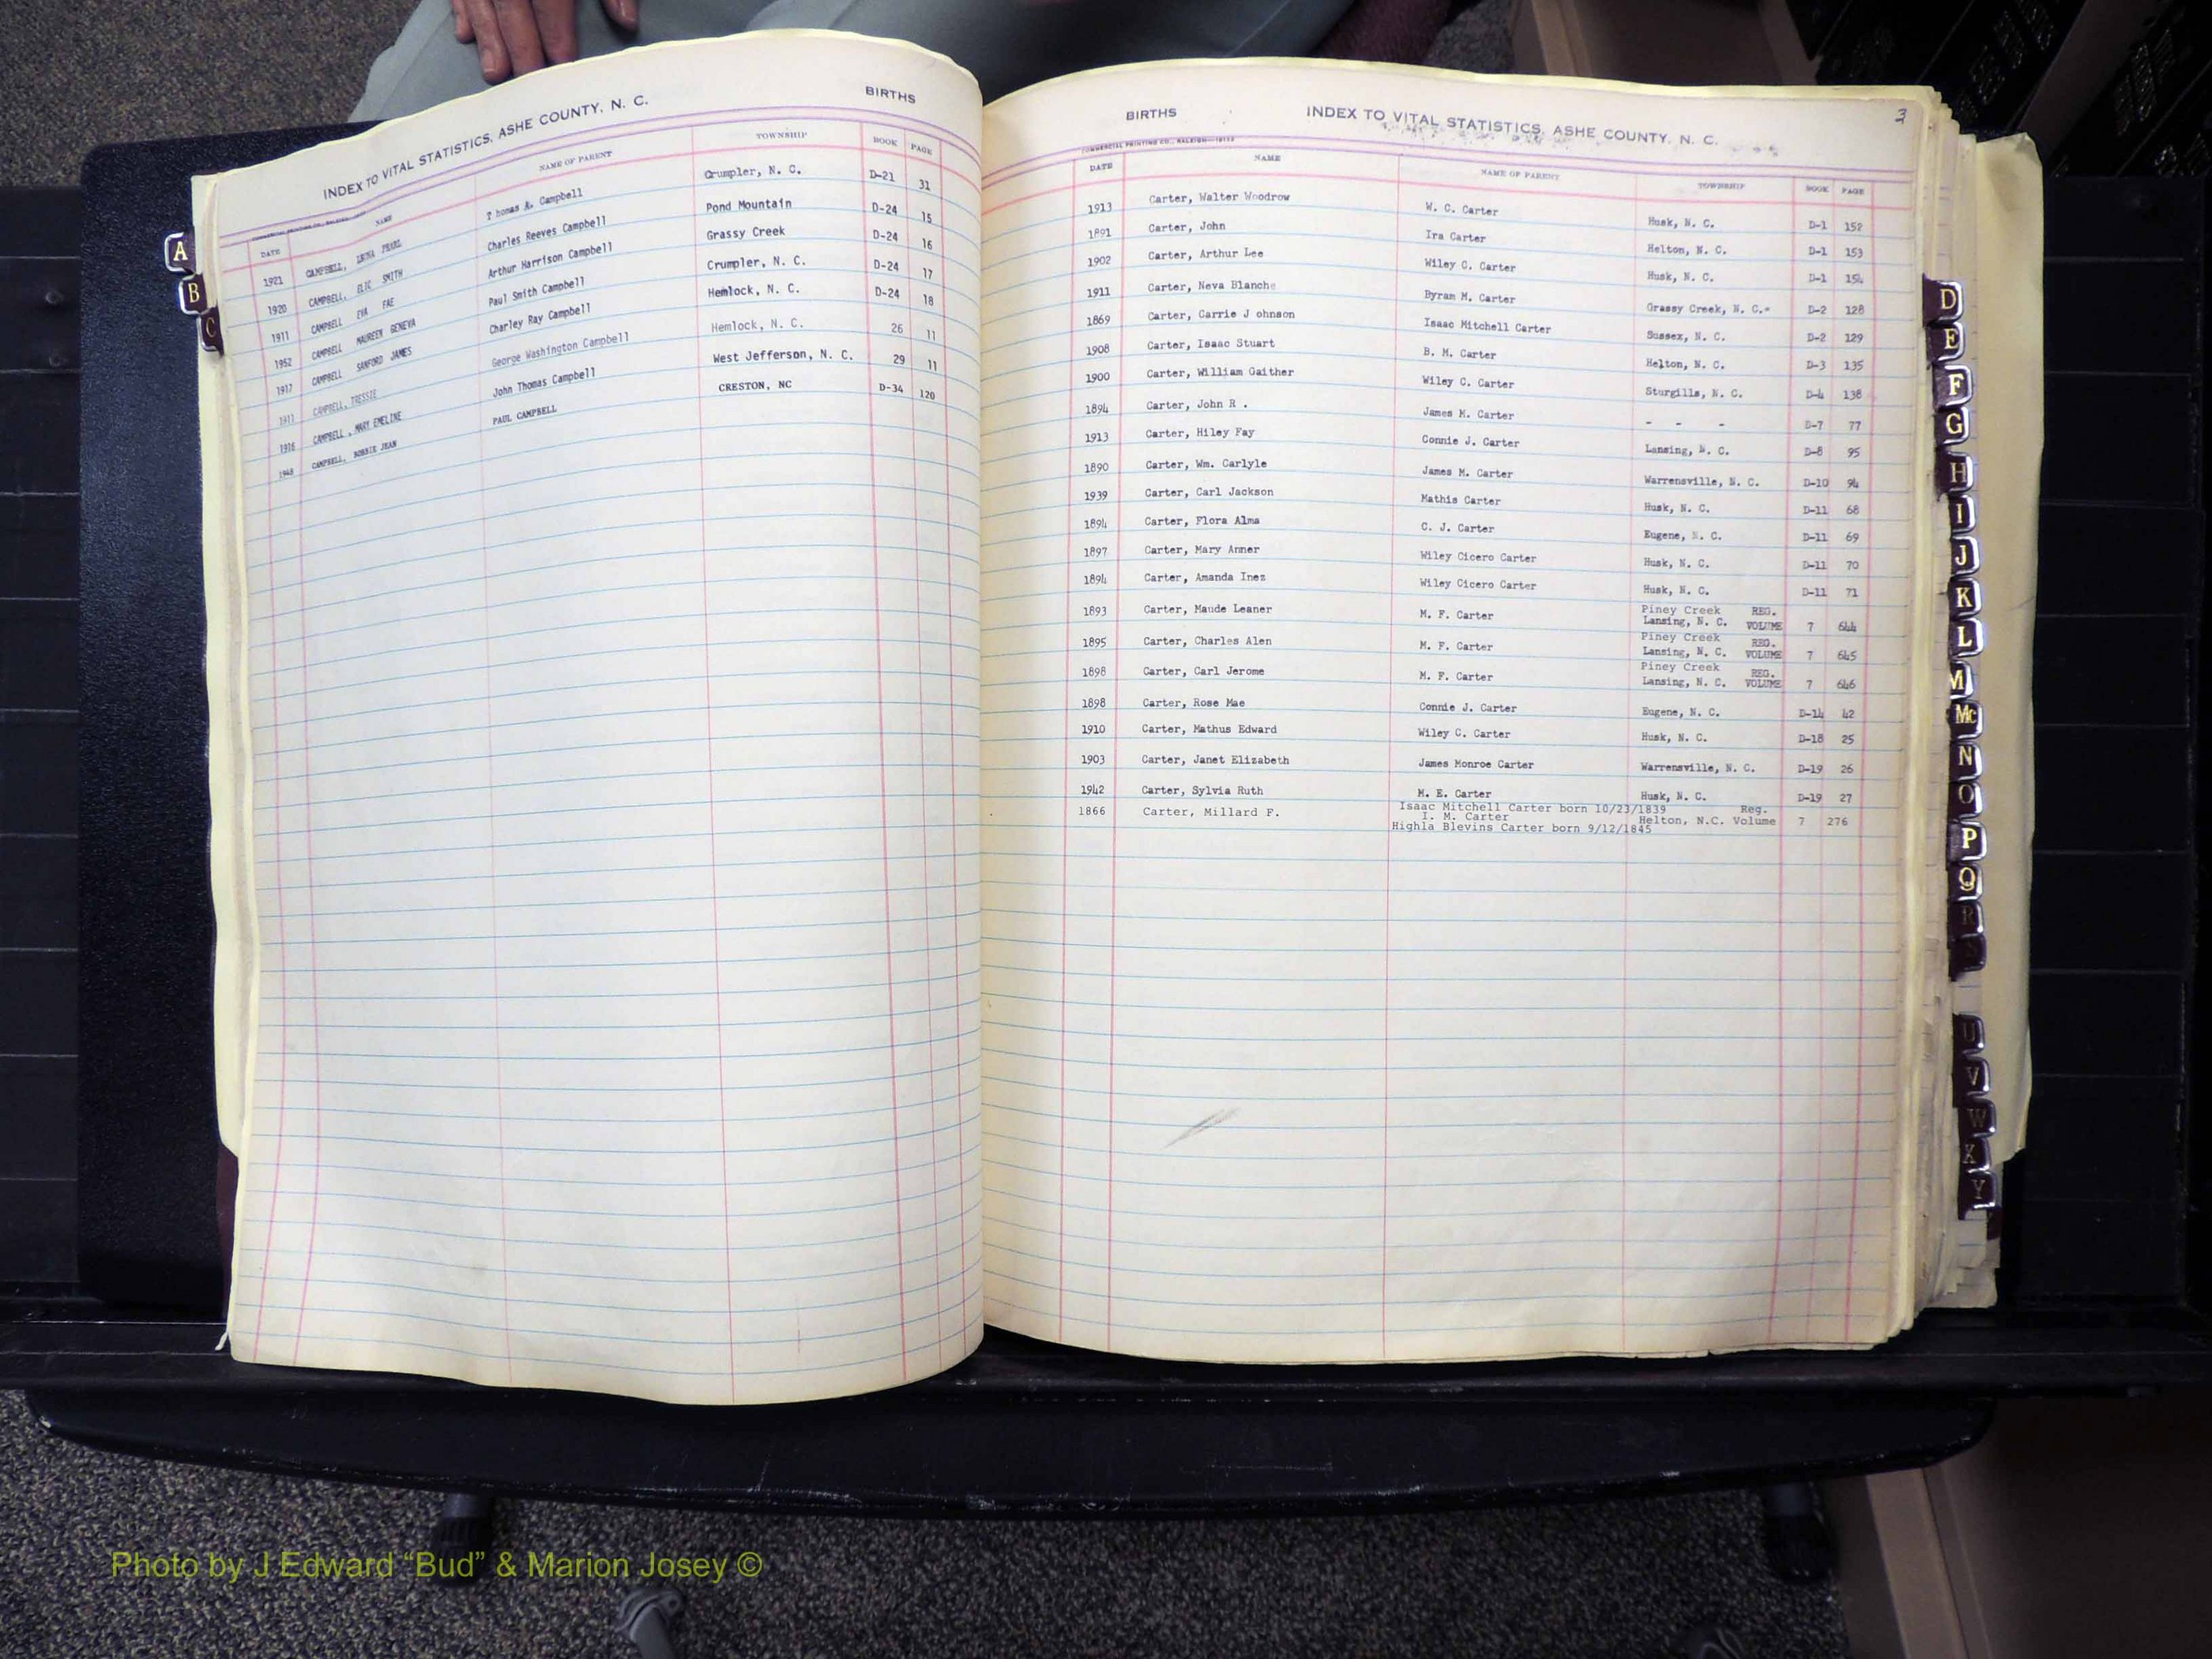 INDEX TO VITAL STATISTICS, ASHE COUNTY, N. C. BIRTHS
DATE NAME NAME OF PARENT TOWNSHIP BOOK PAGE
1921 CAMPBELL, LEONA PEARL T homas A. Campbell Crumpler, N. C. D-21 31
1920 CAMPBELL, ELIC SMITH Charles Reeves Campbell Pond Mountain D-24 15
1911 CAMPBELL EVA FAE Arthur Harrison Campbell Grassy Creek D-24 16
1952 CAMPBELL MAUREEN GENEVA Paul Smith Campbell Crumpler, N. C. D-24 17
1917 CAMPBELL SANFORD JAMES Charley Ray Campbell Hemlock, N. C. D-24 18
1911 CAMPBELL, TRESSIE George Washington Campbell Hemlock, N. C. 26 11
1916 CAMPBELL , MARY EMELINE John Thomas Campbell West Jefferson, N. C. 29 11
1948 CAMPBELL, BOBBIE JEAN PAUL CAMPBELL CRESTON, NC D-34 120
A
B
C
BIRTHS INDEX TO VITAL STATISTICS, ASHE COUNTY, N. C. 3
COMMERCIAL PRINTING CO., RALEIGH
DATE NAME NAME OF PARENT TOWNSHIP BOOK PAGE
1913 Carter, Walter Woodrow W. C. Carter Husk, N. C. D-1 152
1891 Carter, John Ira Carter Helton, N. C. D-1 153
1902 Carter, Arthur Lee Wiley C. Carter Husk, N. C. D-1 154
1911 Carter, Neva Blanche Byram M. Carter Grassy Creek, N. C.- D-2 128
1869 Carter, Carrie J ohnson Isaac Mitchell Carter Sussex, N. C. D-2 129
1908 Carter, Isaac Stuart B. M. Carter Helton, N. C. D-3 135
1900 Carter, William Gaither Wiley C. Carter Sturgills, N. C. D-4 138
1894 Carter, John R . James M. Carter - - - D-7 77
1913 Carter, Hiley Fay Connie J. Carter Lansing, N. C. D-8 95
1890 Carter, Wm. Carlyle James M. Carter Warrensville, N. C. D-10 94
1939 Carter, Carl Jackson Mathis Carter Husk, N. C. D-11 68
1894 Carter, Flora Alma C. J. Carter Eugene, N. C. D-11 69
1897 Carter, Mary Anner Wiley Cicero Carter Husk, N. C. D-11 70
1894 Carter, Amanda Inez Wiley Cicero Carter Husk, N. C. D-11 71
Piney Creek REG.
1893 Carter, Maude Leaner M. F. Carter Lansing, N. C. VOLUME 7 644
Piney Creek REG.
1895 Carter, Charles Alen M. F. Carter Lansing, N. C. VOLUME 7 645
Piney Creek REG.
1898 Carter, Carl Jerome M. F. Carter Lansing, N. C. VOLUME 7 646
1898 Carter, Rose Mae Connie J. Carter Eugene, N. C. D-14 42
1910 Carter, Mathus Edward Wiley C. Carter Husk, N. C. D-18 25
1903 Carter, Janet Elizabeth James Monroe Carter Warrensville, N. C. D-19 26
1942 Carter, Sylvia Ruth M. E. Carter Husk, N. C. D-19 27
Isaac Mitchell Carter born 10/23/1839 Reg.
1866 Carter, Millard F. I. M. Carter Helton, N.C. Volume 7 276
Highla Blevins Carter born 9/12/1845
D
E
F
G
H
I
J
K
L
M
Mc
N
O
P
Q
R
U
V
W
X
Y
Photo by J Edward “Bud” & Marion Josey ©